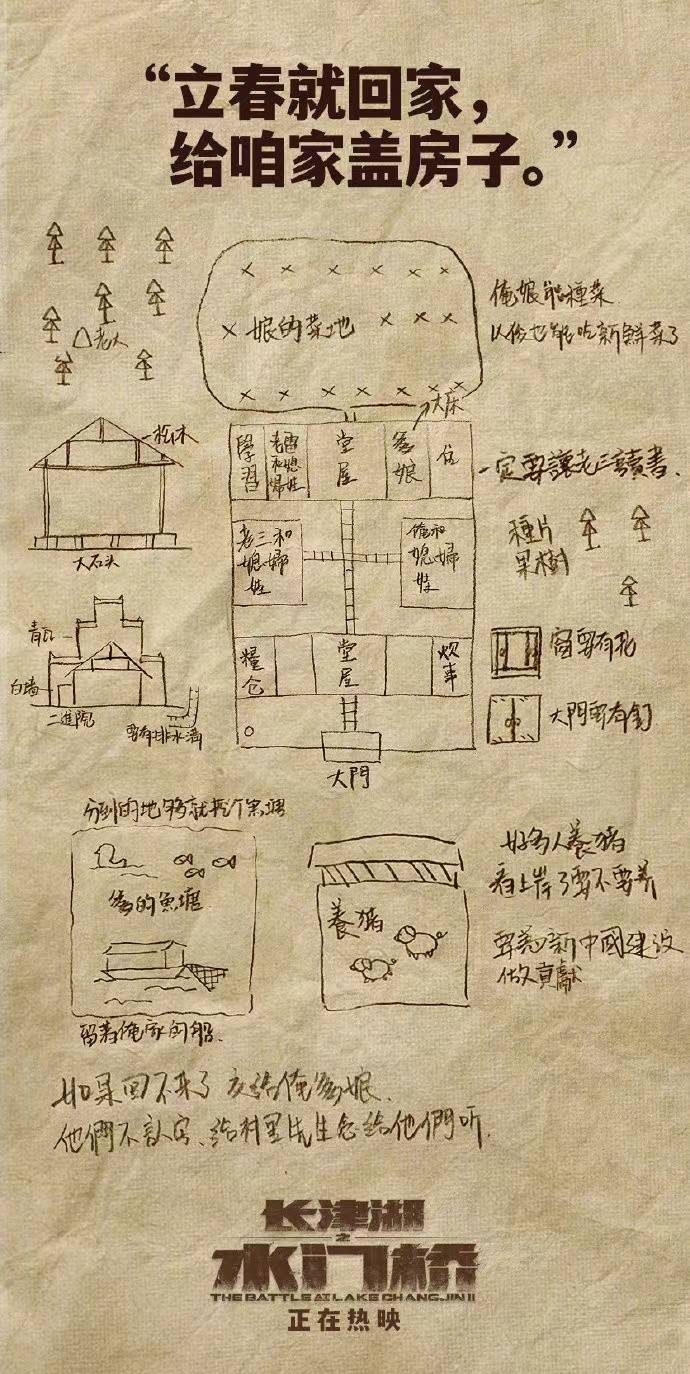 “立春就回家，
给咱家盖房子。”
老人
娘的菜地
俺娘能種菜
以後也能吃新鮜菜了
大床
松木
大石头
學習
老雷和媳婦住
堂屋
爹娘
住
一定要讓老三讀書.
老三和媳婦住
俺和媳婦住
種片果樹
青瓦
白墙
二進院
要有排水溝
糧仓
堂屋
炊事
大門
窗要有花
大門要有釘
分到的地够就挖个魚塘
爹的魚塘
留着俺家的船.
養猪
好多人養猪
看上岸了要不要养
要為新中國建设
做貢獻
如果回不来了 交给俺爹娘.
他們不認字、给村里先生念给他們听.
长津湖
之
水门桥
THE BATTLE AT LAKE CHANGJIN II
正在热映